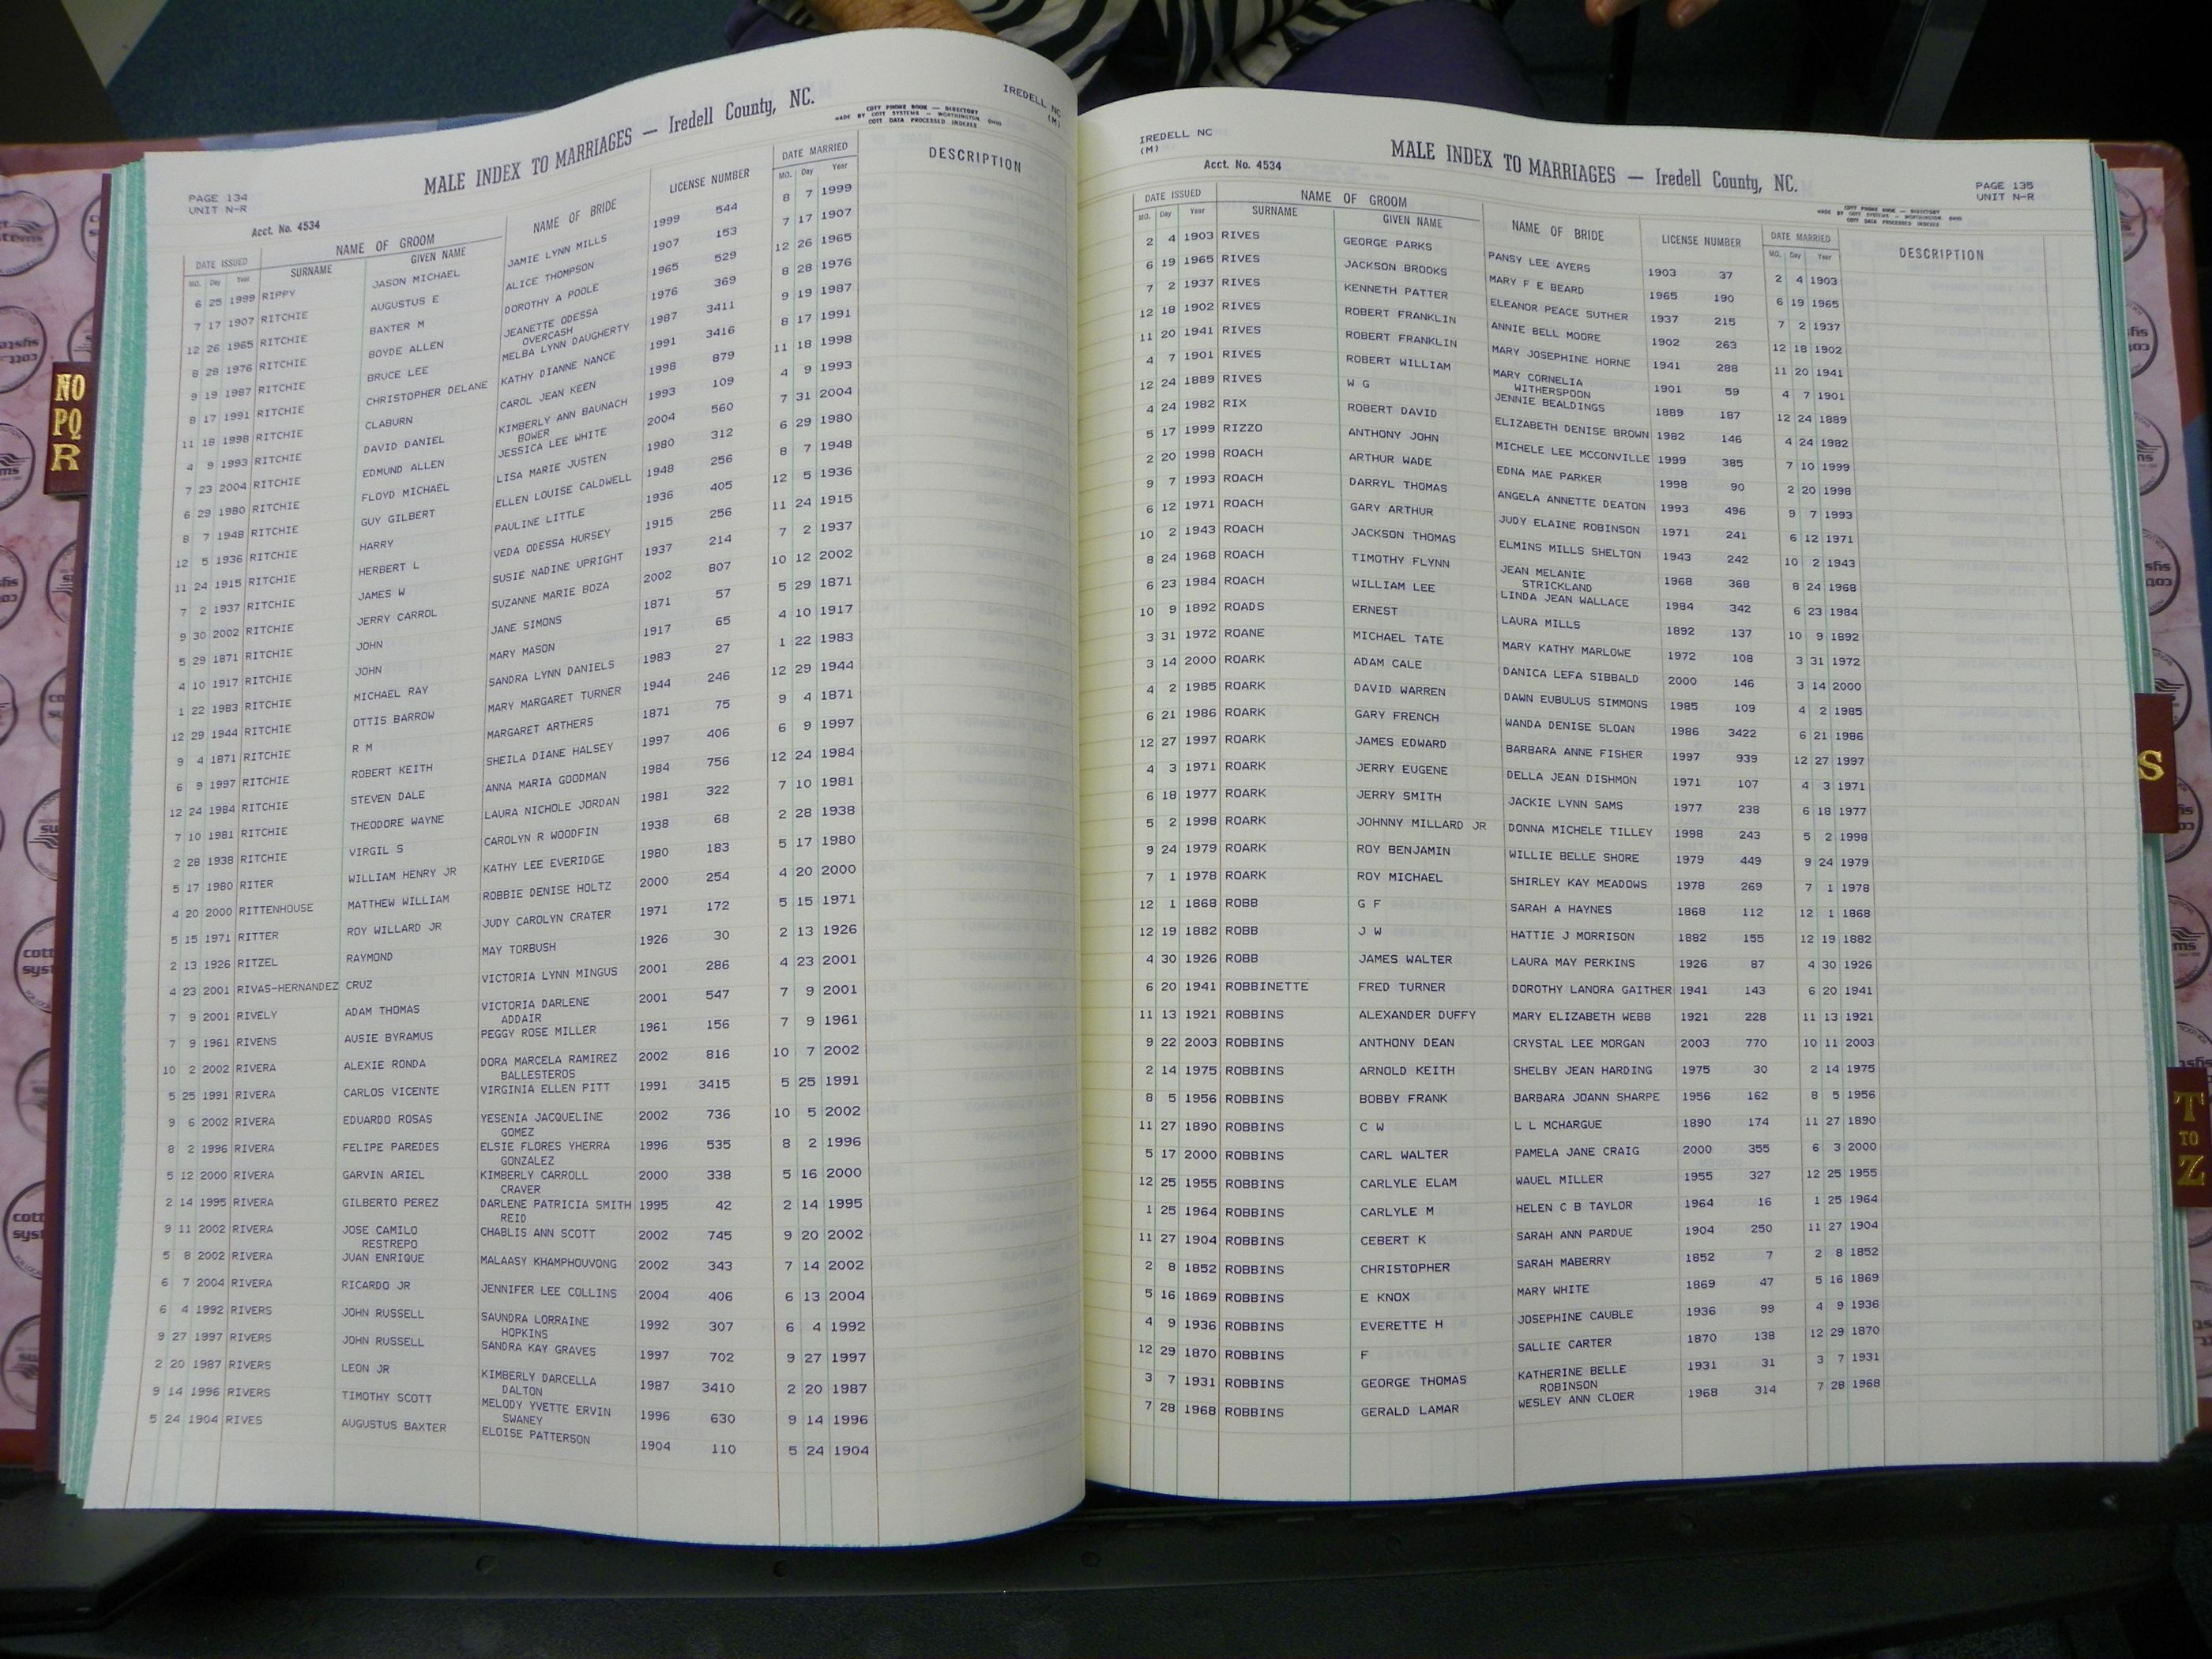 NO
PQ
R
PAGE 134
UNIT N-R
MALE INDEX TO MARRIAGES — Iredell County, NC.
COTT PHONE BOOK — DIRECTORY
MADE BY COTT SYSTEMS — WORTHINGTON OHIO
COTT DATA PROCESSED INDEXES
IREDELL NC
(M)
Acct. No. 4534
DATE ISSUED NAME OF GROOM NAME OF BRIDE LICENSE NUMBER DATE MARRIED DESCRIPTION
MO. Day Year SURNAME GIVEN NAME MO. Day Year
6 25 1999 RIPPY JASON MICHAEL JAMIE LYNN MILLS 1999 544 8 7 1999
7 17 1907 RITCHIE AUGUSTUS E ALICE THOMPSON 1907 153 7 17 1907
12 26 1965 RITCHIE BAXTER M DOROTHY A POOLE 1965 529 12 26 1965
8 28 1976 RITCHIE BOYDE ALLEN JEANETTE ODESSA 1976 369 8 28 1976
OVERCASH
9 19 1987 RITCHIE BRUCE LEE MELBA LYNN DAUGHERTY 1987 3411 9 19 1987
8 17 1991 RITCHIE CHRISTOPHER DELANE KATHY DIANNE NANCE 1991 3416 8 17 1991
11 18 1998 RITCHIE CLABURN CAROL JEAN KEEN 1998 879 11 18 1998
4 9 1993 RITCHIE DAVID DANIEL KIMBERLY ANN BAUNACH 1993 109 4 9 1993
BOWER
7 23 2004 RITCHIE EDMUND ALLEN JESSICA LEE WHITE 2004 560 7 31 2004
6 29 1980 RITCHIE FLOYD MICHAEL LISA MARIE JUSTEN 1980 312 6 29 1980
8 7 1948 RITCHIE GUY GILBERT ELLEN LOUISE CALDWELL 1948 256 8 7 1948
12 5 1936 RITCHIE HARRY PAULINE LITTLE 1936 405 12 5 1936
11 24 1915 RITCHIE HERBERT L VEDA ODESSA HURSEY 1915 256 11 24 1915
7 2 1937 RITCHIE JAMES W SUSIE NADINE UPRIGHT 1937 214 7 2 1937
9 30 2002 RITCHIE JERRY CARROL SUZANNE MARIE BOZA 2002 807 10 12 2002
5 29 1871 RITCHIE JOHN JANE SIMONS 1871 57 5 29 1871
4 10 1917 RITCHIE JOHN MARY MASON 1917 65 4 10 1917
1 22 1983 RITCHIE MICHAEL RAY SANDRA LYNN DANIELS 1983 27 1 22 1983
12 29 1944 RITCHIE OTTIS BARROW MARY MARGARET TURNER 1944 246 12 29 1944
9 4 1871 RITCHIE R M MARGARET ARTHERS 1871 75 9 4 1871
6 9 1997 RITCHIE ROBERT KEITH SHEILA DIANE HALSEY 1997 406 6 9 1997
12 24 1984 RITCHIE STEVEN DALE ANNA MARIA GOODMAN 1984 756 12 24 1984
7 10 1981 RITCHIE THEODORE WAYNE LAURA NICHOLE JORDAN 1981 322 7 10 1981
2 28 1938 RITCHIE VIRGIL S CAROLYN R WOODFIN 1938 68 2 28 1938
5 17 1980 RITER WILLIAM HENRY JR KATHY LEE EVERIDGE 1980 183 5 17 1980
4 20 2000 RITTENHOUSE MATTHEW WILLIAM ROBBIE DENISE HOLTZ 2000 254 4 20 2000
5 15 1971 RITTER ROY WILLARD JR JUDY CAROLYN CRATER 1971 172 5 15 1971
2 13 1926 RITZEL RAYMOND MAY TORBUSH 1926 30 2 13 1926
4 23 2001 RIVAS-HERNANDEZ CRUZ VICTORIA LYNN MINGUS 2001 286 4 23 2001
7 9 2001 RIVELY ADAM THOMAS VICTORIA DARLENE 2001 547 7 9 2001
ADDAIR
7 9 1961 RIVENS AUSIE BYRAMUS PEGGY ROSE MILLER 1961 156 7 9 1961
10 2 2002 RIVERA ALEXIE RONDA DORA MARCELA RAMIREZ 2002 816 10 7 2002
BALLESTEROS
5 25 1991 RIVERA CARLOS VICENTE VIRGINIA ELLEN PITT 1991 3415 5 25 1991
9 6 2002 RIVERA EDUARDO ROSAS YESENIA JACQUELINE 2002 736 10 5 2002
GOMEZ
8 2 1996 RIVERA FELIPE PAREDES ELSIE FLORES YHERRA 1996 535 8 2 1996
GONZALEZ
5 12 2000 RIVERA GARVIN ARIEL KIMBERLY CARROLL 2000 338 5 16 2000
CRAVER
2 14 1995 RIVERA GILBERTO PEREZ DARLENE PATRICIA SMITH 1995 42 2 14 1995
REID
9 11 2002 RIVERA JOSE CAMILO CHABLIS ANN SCOTT 2002 745 9 20 2002
RESTREPO
5 8 2002 RIVERA JUAN ENRIQUE MALAASY KHAMPHOUVONG 2002 343 7 14 2002
6 7 2004 RIVERA RICARDO JR JENNIFER LEE COLLINS 2004 406 6 13 2004
6 4 1992 RIVERS JOHN RUSSELL SAUNDRA LORRAINE 1992 307 6 4 1992
HOPKINS
9 27 1997 RIVERS JOHN RUSSELL SANDRA KAY GRAVES 1997 702 9 27 1997
2 20 1987 RIVERS LEON JR KIMBERLY DARCELLA 1987 3410 2 20 1987
DALTON
9 14 1996 RIVERS TIMOTHY SCOTT MELODY YVETTE ERVIN 1996 630 9 14 1996
SWANEY
5 24 1904 RIVES AUGUSTUS BAXTER ELOISE PATTERSON 1904 110 5 24 1904
IREDELL NC
(M)
Acct. No. 4534
MALE INDEX TO MARRIAGES — Iredell County, NC.
PAGE 135
UNIT N-R
COTT PHONE BOOK — DIRECTORY
MADE BY COTT SYSTEMS — WORTHINGTON OHIO
COTT DATA PROCESSED INDEXES
DATE ISSUED NAME OF GROOM NAME OF BRIDE LICENSE NUMBER DATE MARRIED DESCRIPTION
MO. Day Year SURNAME GIVEN NAME MO. Day Year
2 4 1903 RIVES GEORGE PARKS PANSY LEE AYERS 1903 37 2 4 1903
6 19 1965 RIVES JACKSON BROOKS MARY F E BEARD 1965 190 6 19 1965
7 2 1937 RIVES KENNETH PATTER ELEANOR PEACE SUTHER 1937 215 7 2 1937
12 18 1902 RIVES ROBERT FRANKLIN ANNIE BELL MOORE 1902 263 12 18 1902
11 20 1941 RIVES ROBERT FRANKLIN MARY JOSEPHINE HORNE 1941 288 11 20 1941
4 7 1901 RIVES ROBERT WILLIAM MARY CORNELIA 1901 59 4 7 1901
WITHERSPOON
12 24 1889 RIVES W G JENNIE BEALDINGS 1889 187 12 24 1889
4 24 1982 RIX ROBERT DAVID ELIZABETH DENISE BROWN 1982 146 4 24 1982
5 17 1999 RIZZO ANTHONY JOHN MICHELE LEE MCCONVILLE 1999 385 7 10 1999
2 20 1998 ROACH ARTHUR WADE EDNA MAE PARKER 1998 90 2 20 1998
9 7 1993 ROACH DARRYL THOMAS ANGELA ANNETTE DEATON 1993 496 9 7 1993
6 12 1971 ROACH GARY ARTHUR JUDY ELAINE ROBINSON 1971 241 6 12 1971
10 2 1943 ROACH JACKSON THOMAS ELMINS MILLS SHELTON 1943 242 10 2 1943
8 24 1968 ROACH TIMOTHY FLYNN JEAN MELANIE 1968 368 8 24 1968
STRICKLAND
6 23 1984 ROACH WILLIAM LEE LINDA JEAN WALLACE 1984 342 6 23 1984
10 9 1892 ROADS ERNEST LAURA MILLS 1892 137 10 9 1892
3 31 1972 ROANE MICHAEL TATE MARY KATHY MARLOWE 1972 108 3 31 1972
3 14 2000 ROARK ADAM CALE DANICA LEFA SIBBALD 2000 146 3 14 2000
4 2 1985 ROARK DAVID WARREN DAWN EUBULUS SIMMONS 1985 109 4 2 1985
6 21 1986 ROARK GARY FRENCH WANDA DENISE SLOAN 1986 3422 6 21 1986
12 27 1997 ROARK JAMES EDWARD BARBARA ANNE FISHER 1997 939 12 27 1997
4 3 1971 ROARK JERRY EUGENE DELLA JEAN DISHMON 1971 107 4 3 1971
6 18 1977 ROARK JERRY SMITH JACKIE LYNN SAMS 1977 238 6 18 1977
5 2 1998 ROARK JOHNNY MILLARD JR DONNA MICHELE TILLEY 1998 243 5 2 1998
9 24 1979 ROARK ROY BENJAMIN WILLIE BELLE SHORE 1979 449 9 24 1979
7 1 1978 ROARK ROY MICHAEL SHIRLEY KAY MEADOWS 1978 269 7 1 1978
12 1 1868 ROBB G F SARAH A HAYNES 1868 112 12 1 1868
12 19 1882 ROBB J W HATTIE J MORRISON 1882 155 12 19 1882
4 30 1926 ROBB JAMES WALTER LAURA MAY PERKINS 1926 87 4 30 1926
6 20 1941 ROBBINETTE FRED TURNER DOROTHY LANORA GAITHER 1941 143 6 20 1941
11 13 1921 ROBBINS ALEXANDER DUFFY MARY ELIZABETH WEBB 1921 228 11 13 1921
9 22 2003 ROBBINS ANTHONY DEAN CRYSTAL LEE MORGAN 2003 770 10 11 2003
2 14 1975 ROBBINS ARNOLD KEITH SHELBY JEAN HARDING 1975 30 2 14 1975
8 5 1956 ROBBINS BOBBY FRANK BARBARA JOANN SHARPE 1956 162 8 5 1956
11 27 1890 ROBBINS C W L L MCHARGUE 1890 174 11 27 1890
5 17 2000 ROBBINS CARL WALTER PAMELA JANE CRAIG 2000 355 6 3 2000
12 25 1955 ROBBINS CARLYLE ELAM WAUEL MILLER 1955 327 12 25 1955
1 25 1964 ROBBINS CARLYLE M HELEN C B TAYLOR 1964 16 1 25 1964
11 27 1904 ROBBINS CEBERT K SARAH ANN PARDUE 1904 250 11 27 1904
2 8 1852 ROBBINS CHRISTOPHER SARAH MABERRY 1852 7 2 8 1852
5 16 1869 ROBBINS E KNOX MARY WHITE 1869 47 5 16 1869
4 9 1936 ROBBINS EVERETTE H JOSEPHINE CAUBLE 1936 99 4 9 1936
12 29 1870 ROBBINS F SALLIE CARTER 1870 138 12 29 1870
3 7 1931 ROBBINS GEORGE THOMAS KATHERINE BELLE 1931 31 3 7 1931
ROBINSON
7 28 1968 ROBBINS GERALD LAMAR WESLEY ANN CLOER 1968 314 7 28 1968
S
T
TO
Z